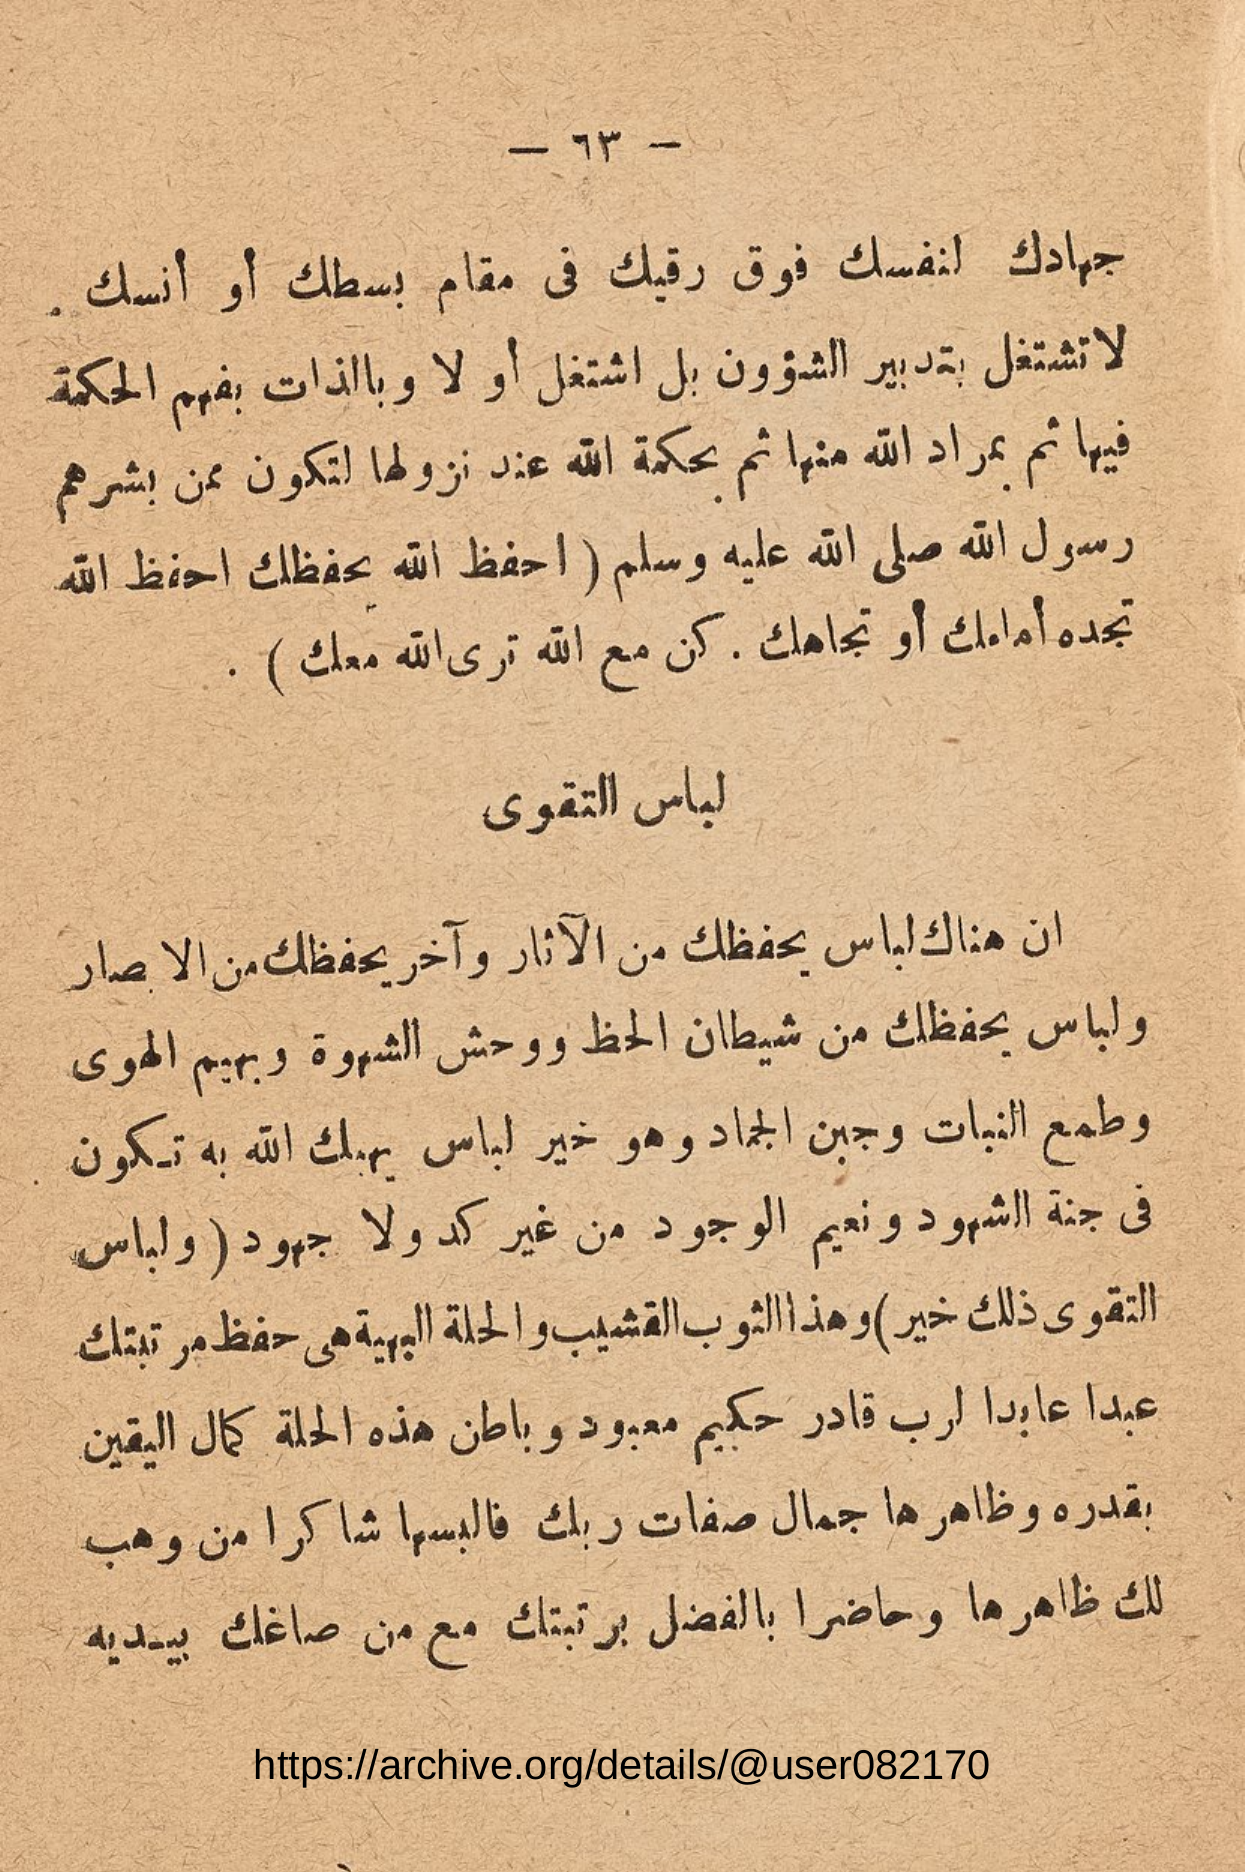 — ٦٣ —
جهادك لنفسك فوق رقيك فى مقام بسطك أو أنسك .
لا تشتغل بتدبير الشؤون بل اشتغل أو لا وبالذات بفهم الحكمة
فيها ثم بمراد الله منها ثم بحكمة الله عند نزولها لتكون ممن بشرهم
رسول الله صلى الله عليه وسلم ( احفظ الله يحفظك احفظ الله
تجده أمامك أو تجاهك . كن مع الله ترى الله معك ) .
لباس التقوى
ان هناك لباس يحفظك من الآثار وآخر يحفظك من الابصار
ولباس يحفظك من شيطان الحظ ووحش الشهوة وبهيم الهوى
وطمع النبات وجبن الجماد وهو خير لباس يهبك الله به تكون
فى جنة الشهود ونعيم الوجود من غير كد ولا جهود ( ولباس
التقوى ذلك خير ) وهذا الثوب القشيب والحلة البهية هى حفظ مرتبتك
عبدا عابدا لرب قادر حكيم معبود وباطن هذه الحلة كمال اليقين
بقدره وظاهرها جمال صفات ربك فالبسها شاكرا من وهب
لك ظاهرها وحاضرا بالفضل برتبتك مع من صاغك بيديه
https://archive.org/details/@user082170